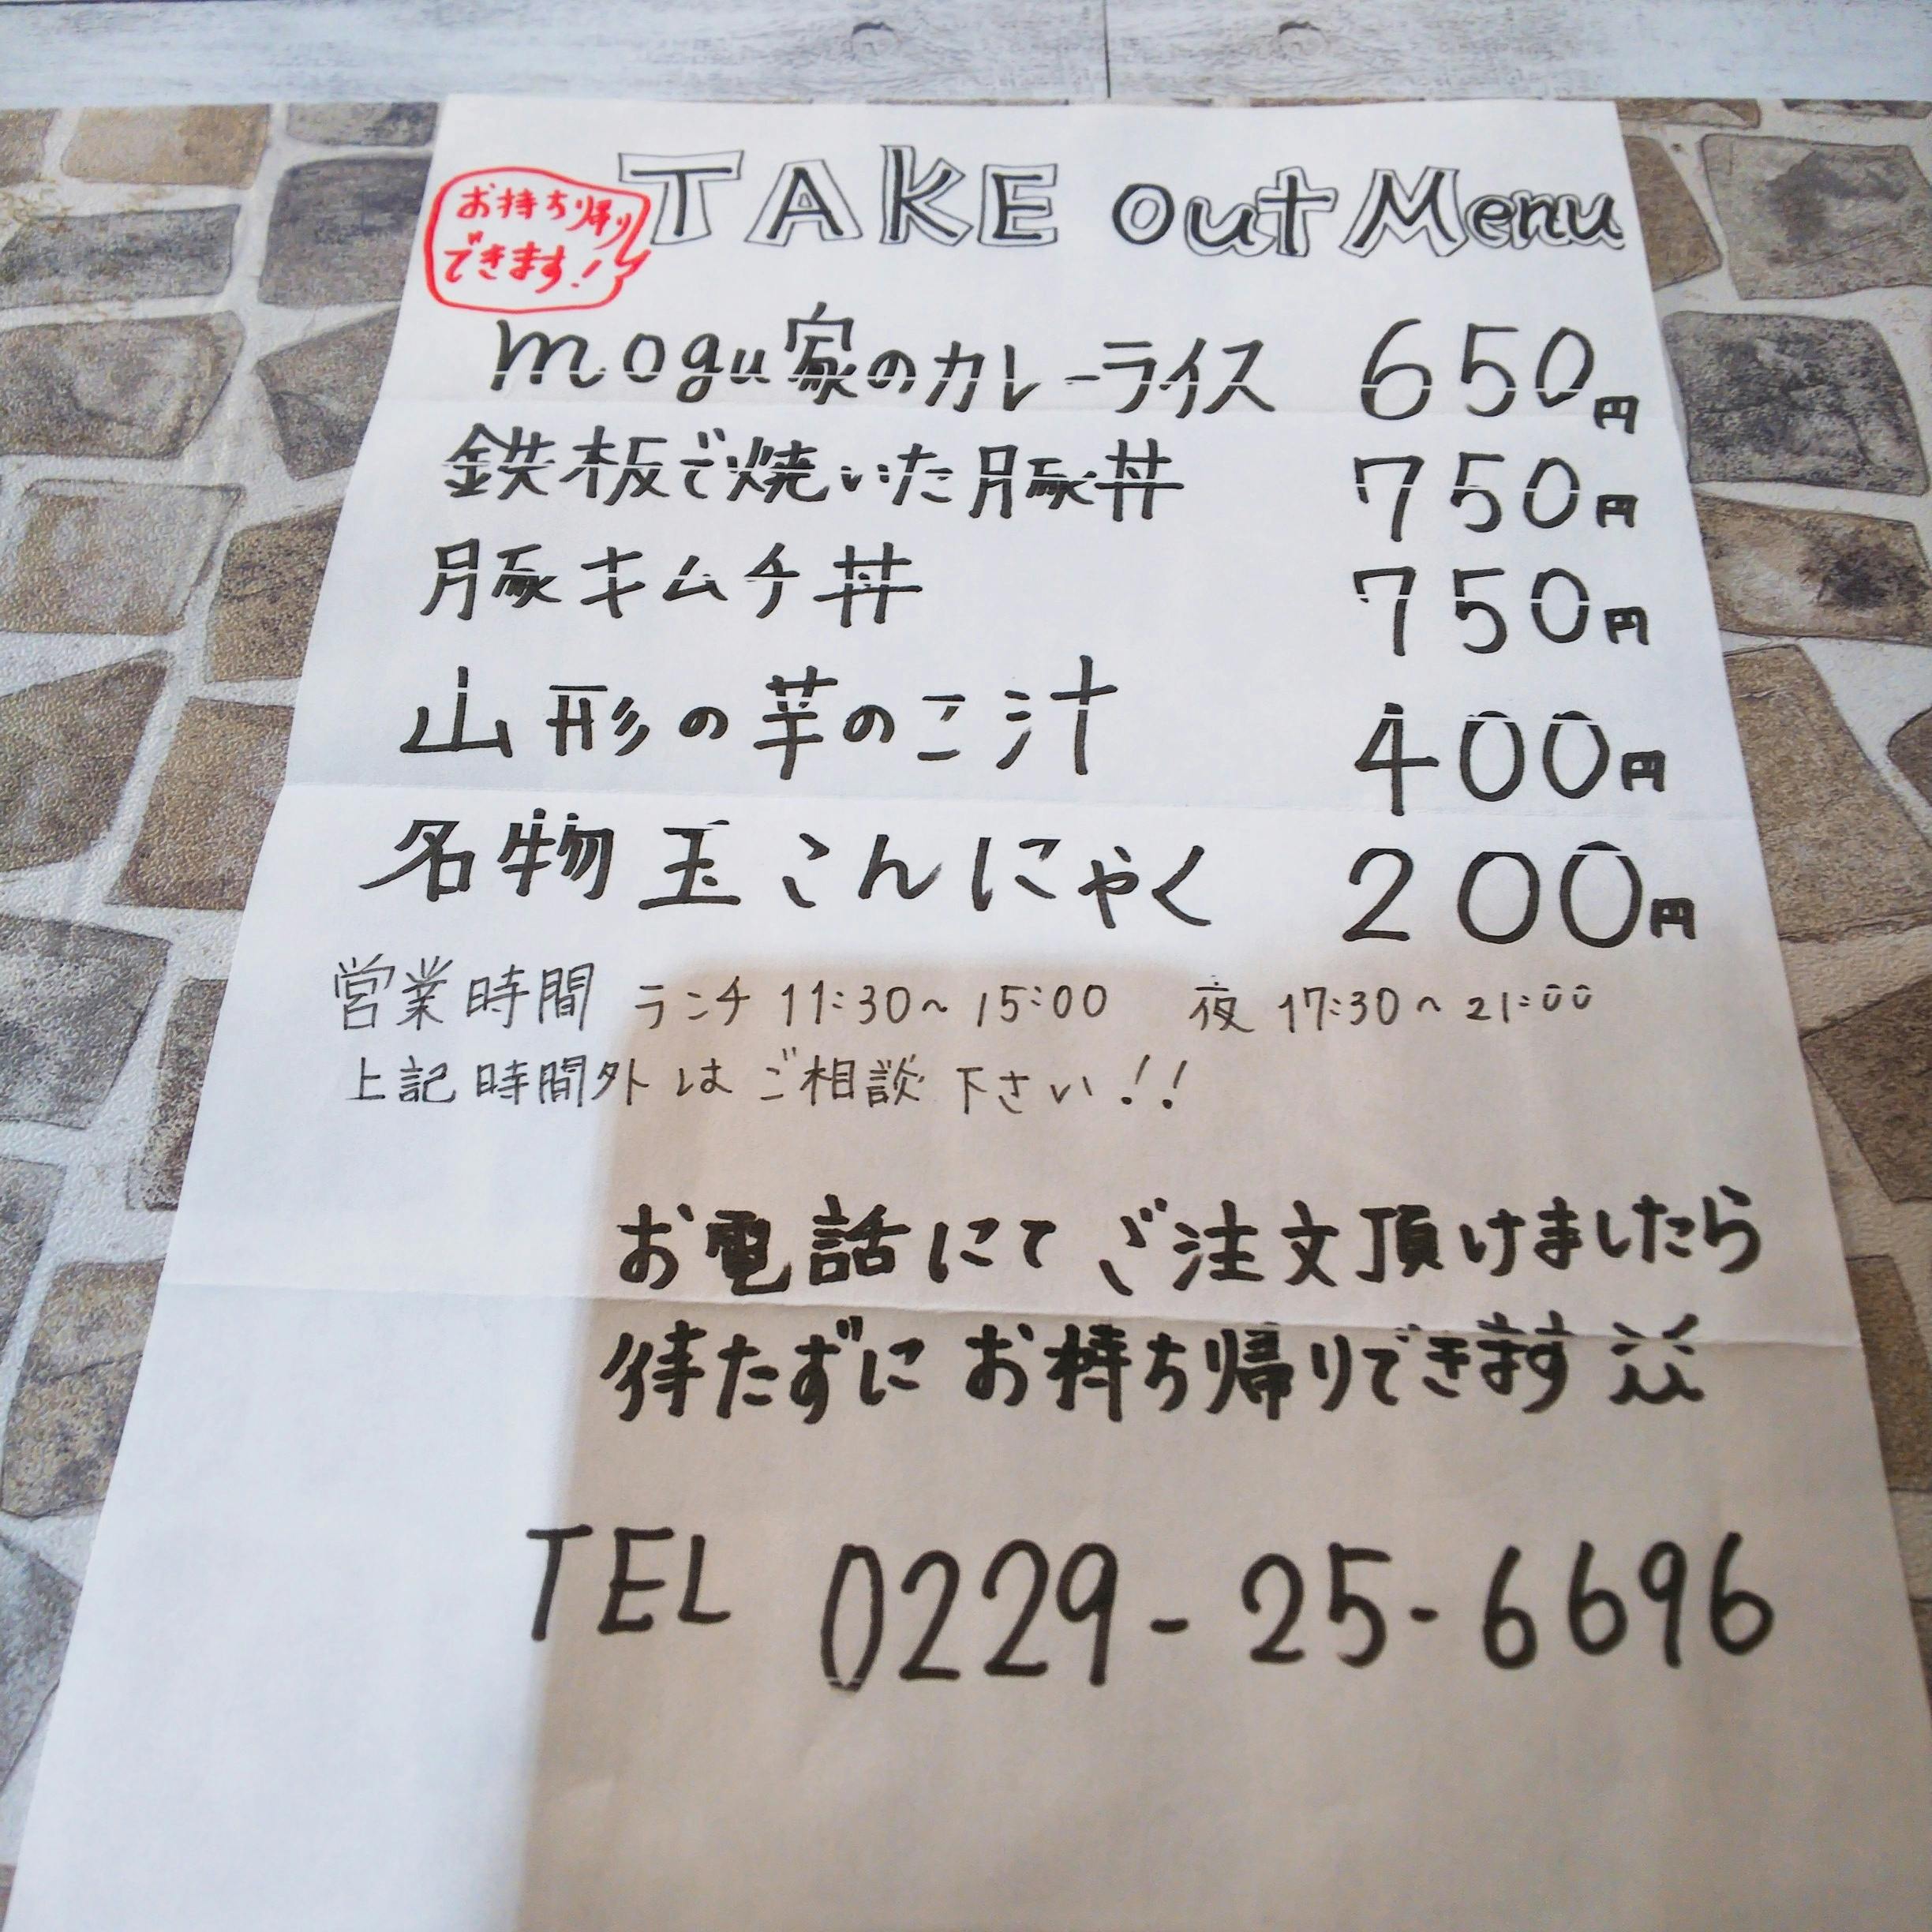 お持ち帰り
できます!
TAKE out Menu
mogu家のカレーライス 650円
鉄板で焼いた豚丼 750円
豚キムチ丼 750円
山形の芋のこ汁 400円
名物玉こんにゃく 200円
営業時間 ランチ 11:30~15:00 夜 17:30~21:00
上記時間外はご相談下さい!!
お電話にてご注文頂けましたら
待たずにお持ち帰りできます
TEL 0229-25-6696